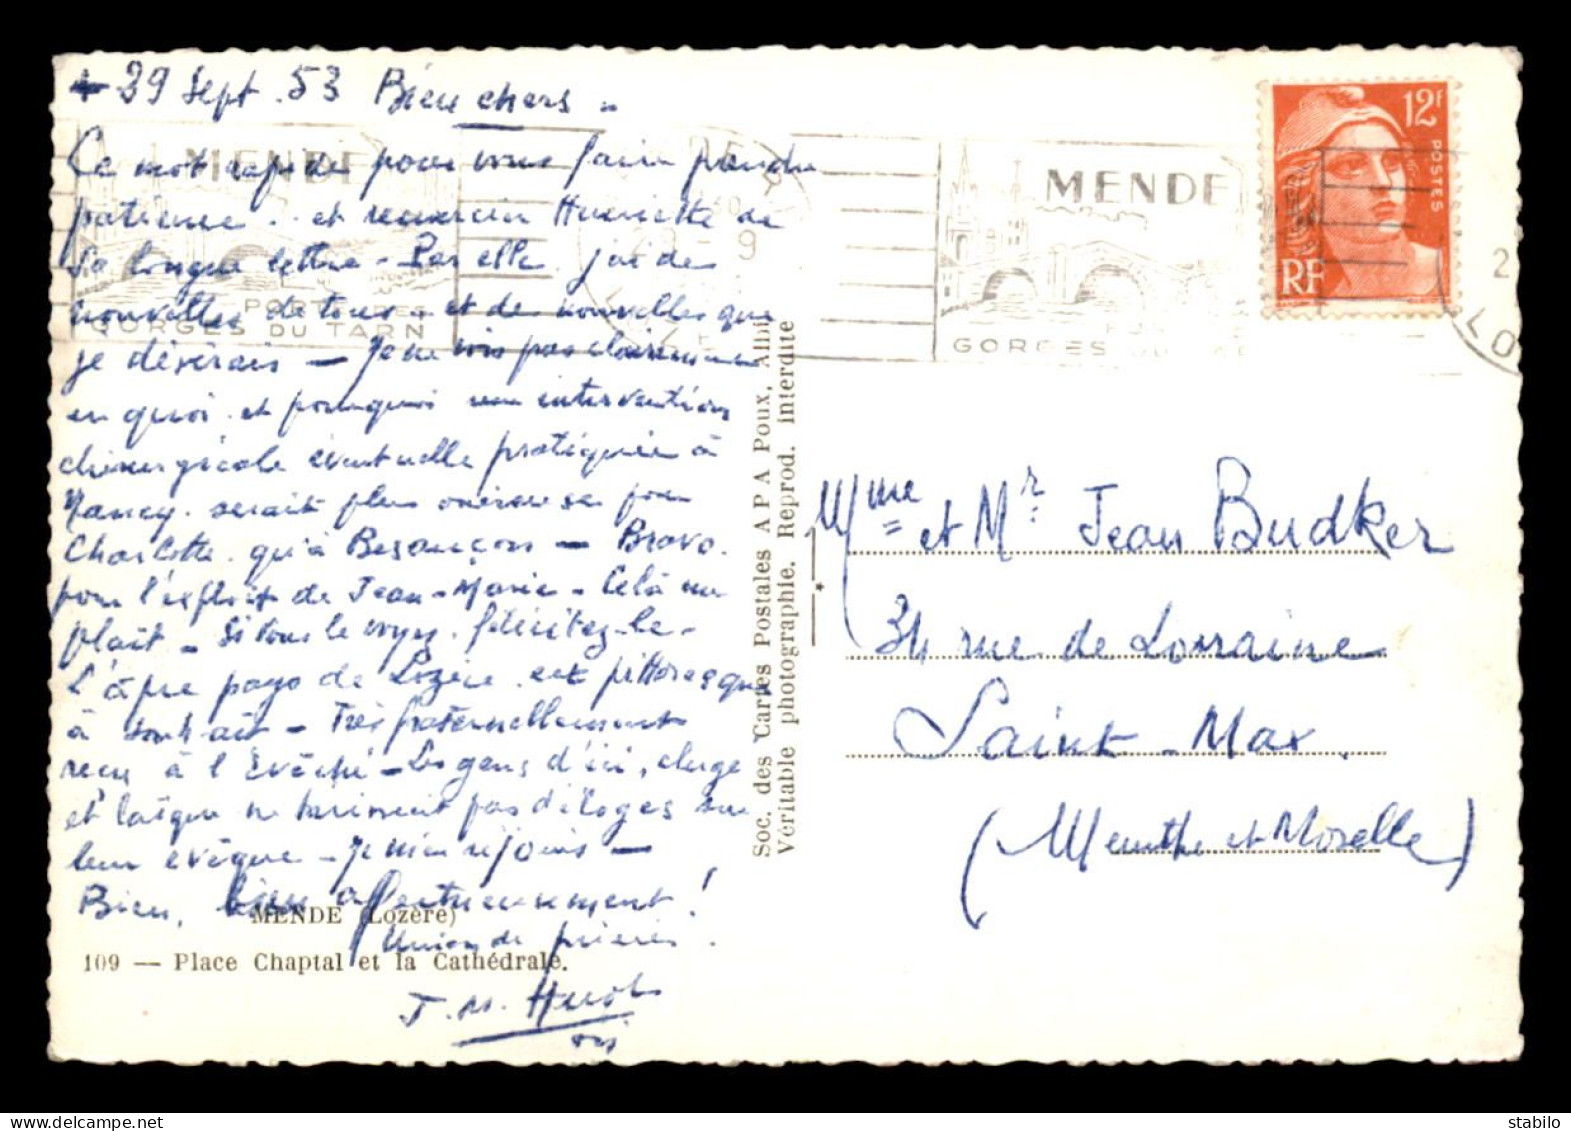 + 29 Sept. 53 Bien chers -
Ce mot rapide pour vous faire prendre
patience. et remercier Henriette de
sa longue lettre - Par elle j'ai des
nouvelles de tous - et des nouvelles que
je désirais - Je ne vois pas clairement
en quoi et pourquoi une intervention
chirurgicale éventuelle pratiquée à
Nancy. serait plus onéreuse pour
Charlotte qu'à Besançon - Bravo
pour l'exploit de Jean-Marie - Celà me
plait - Si vous le voyez. félicitez-le -
L'âpre pays de Lozère est pittoresque
à souhait - Très fraternellement
reçu à l'Evêché - Les gens d'ici, clergé
et laïque ne tarissent pas d'éloges sur
leur evêque - Je m'en réjouis -
Bien, bien affectueusement!
Union de prières.
MENDE (Lozère)
109 — Place Chaptal et la Cathédrale.
Soc. des Cartes Postales A P A Poux, Albi
Véritable photographie. Reprod. interdite
MENDE
GORGES DU TARN
29 - 9
MENDE
GORGES DU
12F
POSTES
RF
Mme et Mr Jean Budker
34 rue de Lorraine
Saint-Max.
(Meurthe et Moselle)
stabilo